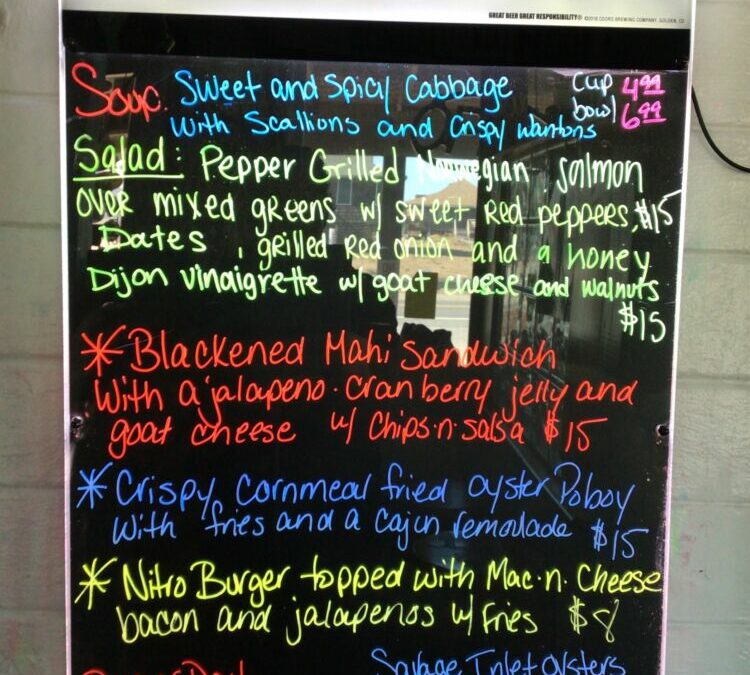 GREAT BEER GREAT RESPONSIBILITY® ©2016 COORS BREWING COMPANY, GOLDEN, CO
Soup: Sweet and Spicy Cabbage cup 4.99
With Scallions and Crispy Wantons bowl 6.99
Salad: Pepper Grilled Norwegian Salmon
over mixed greens w/ sweet Red peppers, $15
Dates, grilled Red onion and a honey
Dijon vinaigrette w/ goat cheese and walnuts
$15
*Blackened Mahi Sandwich
With a jalapeno-cranberry jelly and
goat cheese w/ Chips-n-salsa $15
*Crispy Cornmeal fried oyster Poboy
with fries and a cajun remoulade $15
*Nitro Burger topped with Mac-n-Cheese
bacon and jalapenos w/ fries $8
Savage Inlet oysters